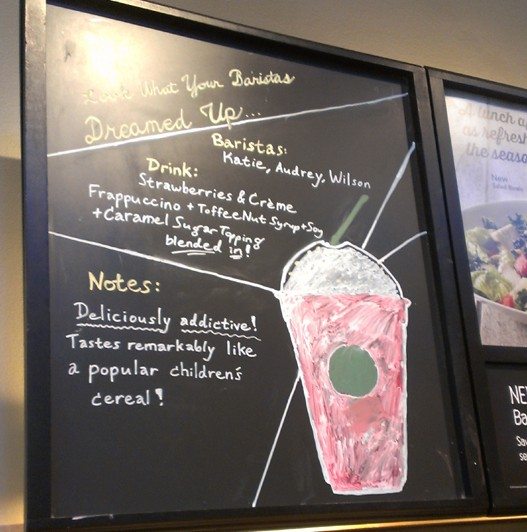 Look What Your Baristas
Dreamed Up...
Baristas:
Katie, Audrey, Wilson
Drink:
Strawberries & Crème
Frappuccino + Toffee Nut Syrup + Soy
+ Caramel Sugar Topping
blended in!
Notes:
Deliciously addictive!
Tastes remarkably like
a popular children's
cereal!
lunch
as refresh
the seaso
New
NE
Ba